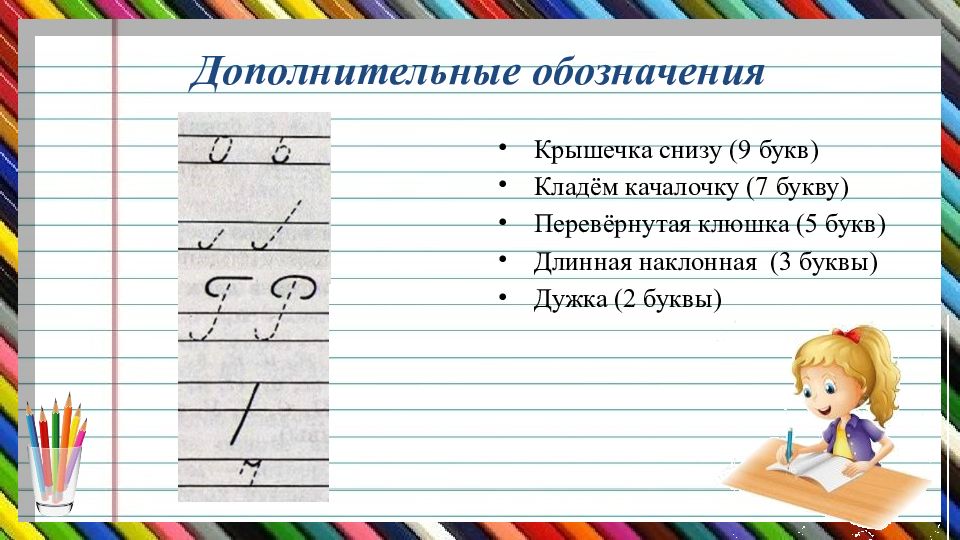 Дополнительные обозначения
Крышечка снизу (9 букв)
Кладём качалочку (7 букву)
Перевёрнутая клюшка (5 букв)
Длинная наклонная (3 буквы)
Дужка (2 буквы)